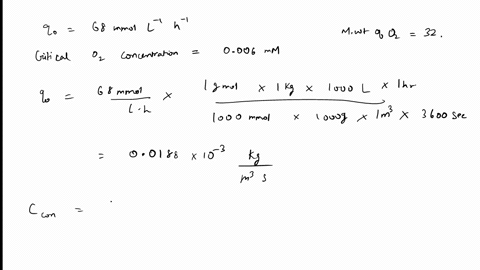 q₀ = 68 mmol L⁻¹ h⁻¹
M.wt of O₂ = 32.
Critical O₂ concentration = 0.006 mM
q₀ = 68 mmol / L·h × 1 gmol × 1 kg × 1000 L × 1hr / 1000 mmol × 1000g × 1m³ × 3600 sec
= 0.0188 × 10⁻³ kg / m³ s
C con =